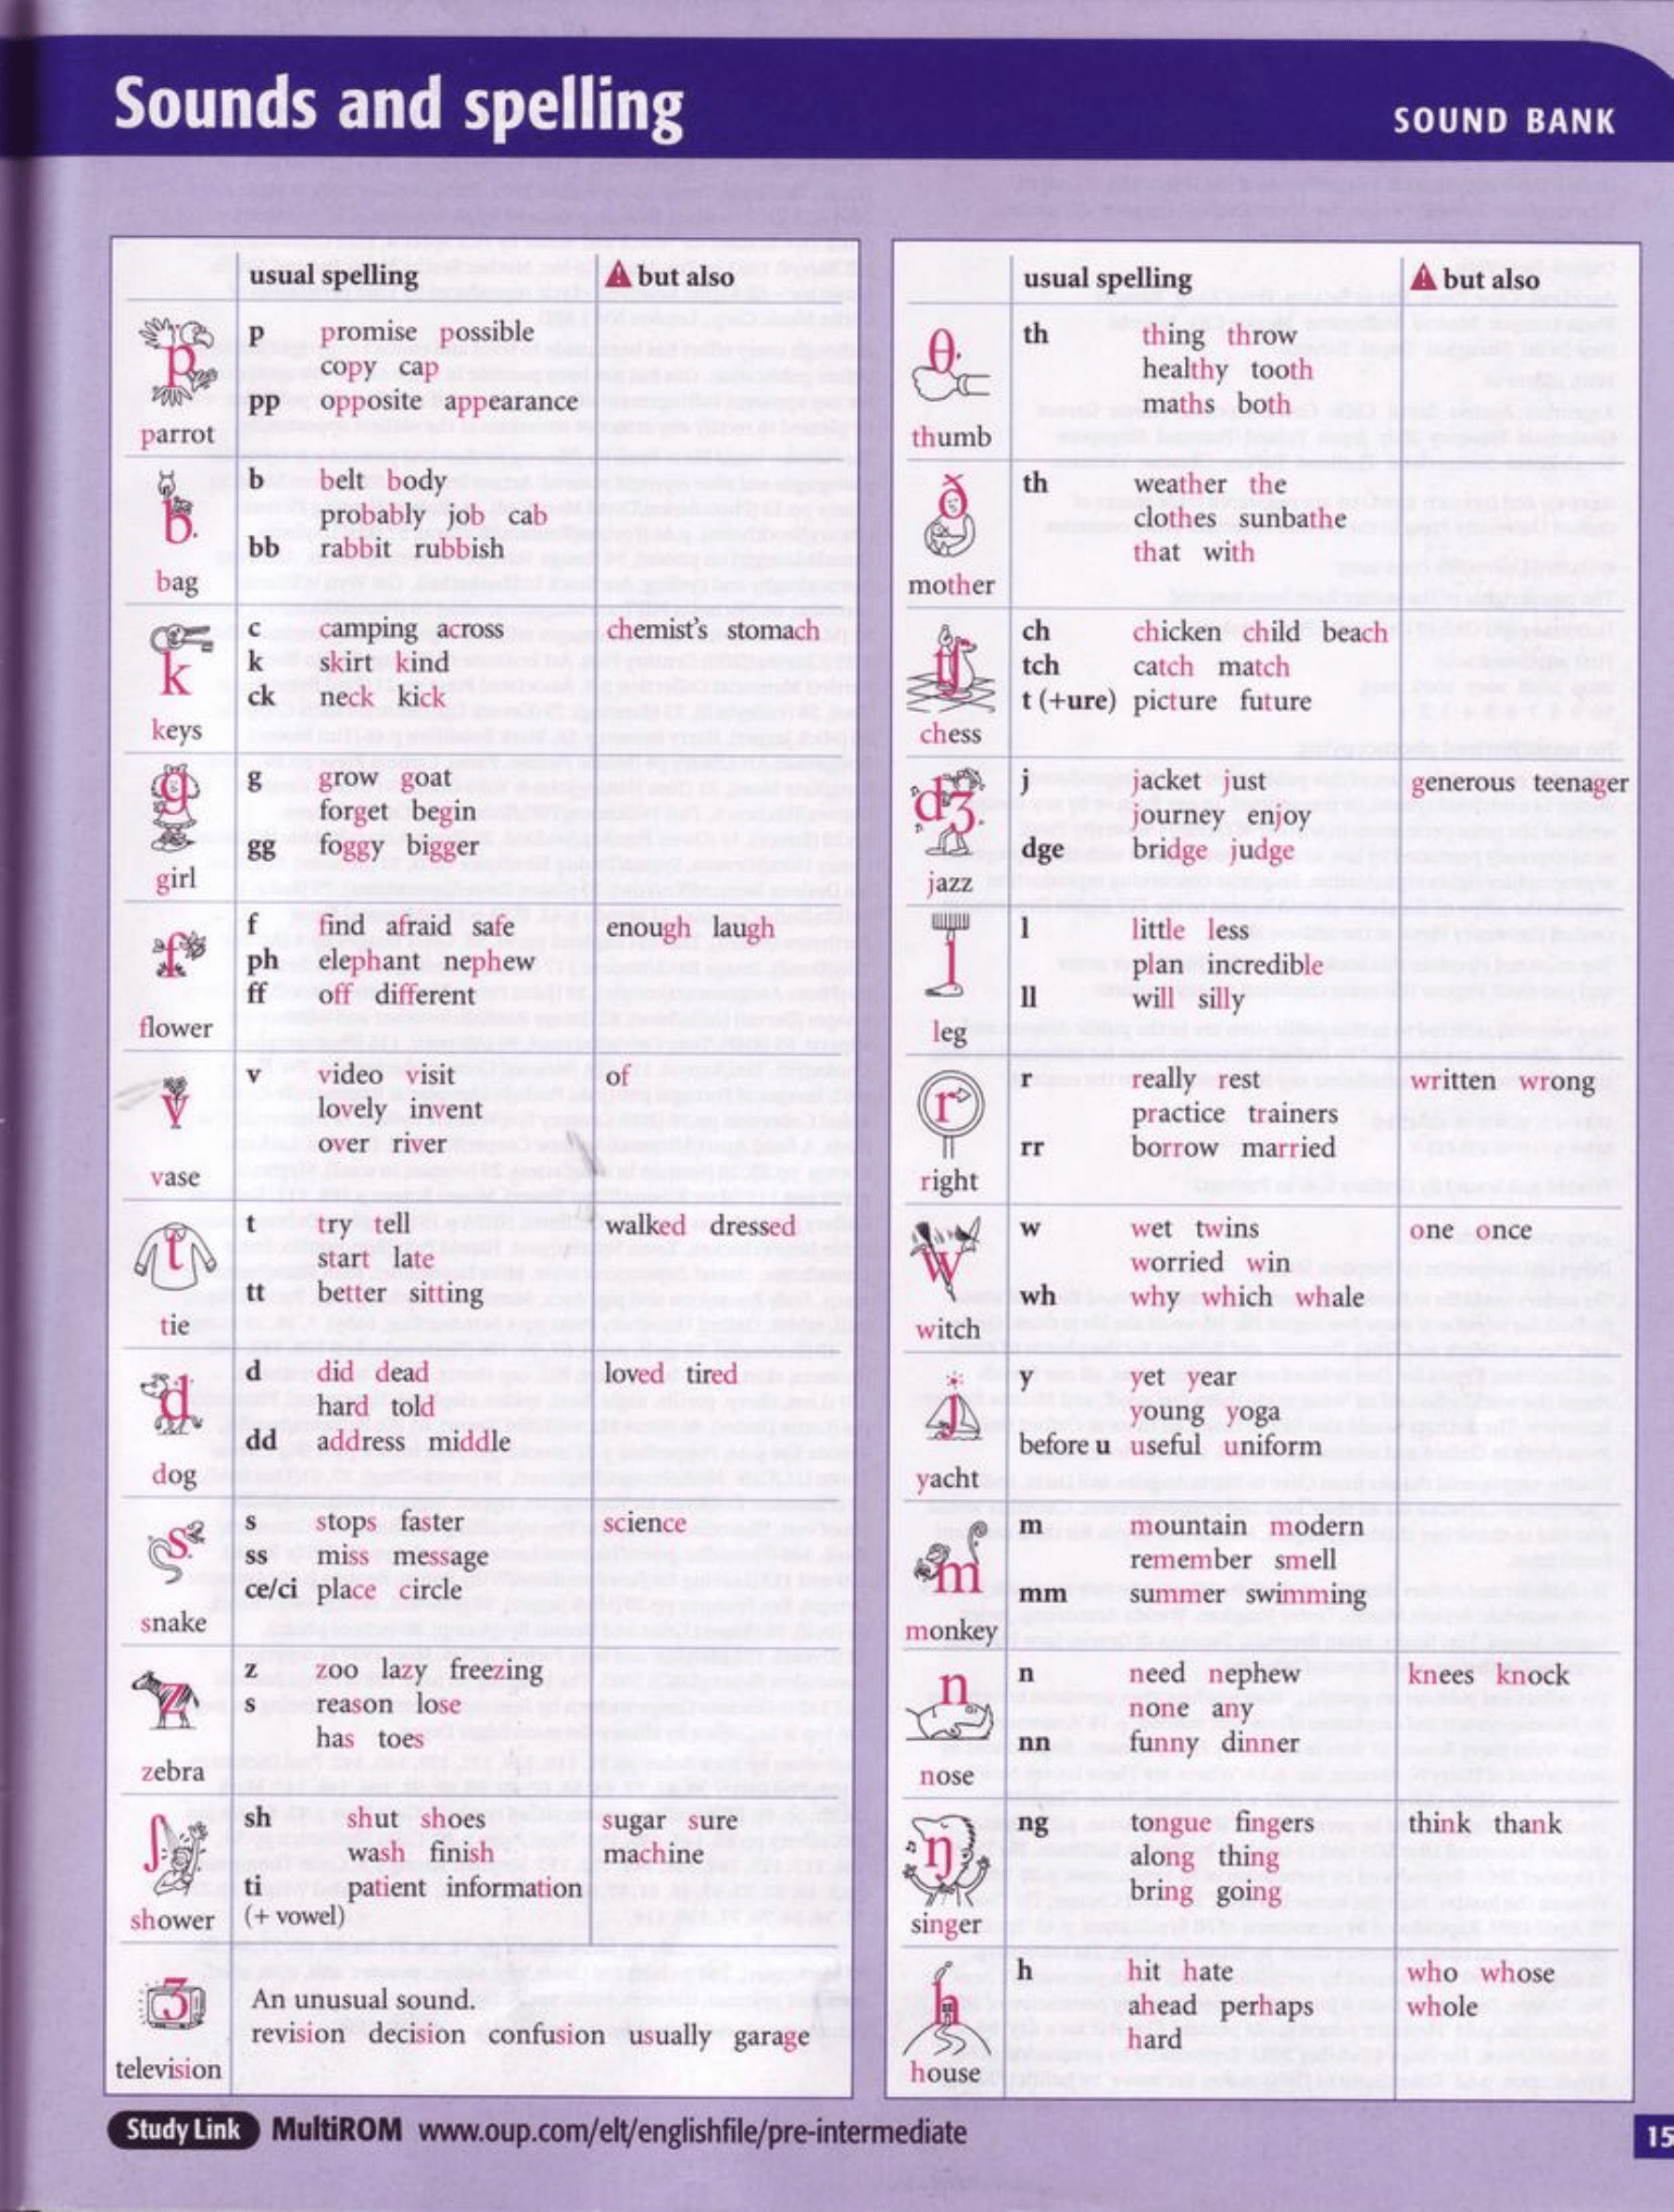 Sounds and spelling
SOUND BANK
usual spelling but also
p
parrot
p promise possible
copy cap
pp opposite appearance
b
bag
b belt body
probably job cab
bb rabbit rubbish
k
keys
c camping across chemist's stomach
k skirt kind
ck neck kick
g
girl
g grow goat
forget begin
gg foggy bigger
f
flower
f find afraid safe enough laugh
ph elephant nephew
ff off different
v
vase
v video visit of
lovely invent
over river
t
tie
t try tell walked dressed
start late
tt better sitting
d
dog
d did dead loved tired
hard told
dd address middle
s
snake
s stops faster science
ss miss message
ce/ci place circle
z
zebra
z zoo lazy freezing
s reason lose
has toes
ʃ
shower
sh shut shoes sugar sure
wash finish machine
ti patient information
(+ vowel)
ʒ
television
An unusual sound.
revision decision confusion usually garage
usual spelling but also
θ
thumb
th thing throw
healthy tooth
maths both
ð
mother
th weather the
clothes sunbathe
that with
tʃ
chess
ch chicken child beach
tch catch match
t (+ure) picture future
dʒ
jazz
j jacket just generous teenager
journey enjoy
dge bridge judge
l
leg
l little less
plan incredible
ll will silly
r
right
r really rest written wrong
practice trainers
rr borrow married
w
witch
w wet twins one once
worried win
wh why which whale
j
yacht
y yet year
young yoga
before u useful uniform
m
monkey
m mountain modern
remember smell
mm summer swimming
n
nose
n need nephew knees knock
none any
nn funny dinner
ŋ
singer
ng tongue fingers think thank
along thing
bring going
h
house
h hit hate who whose
ahead perhaps whole
hard
Study Link MultiROM www.oup.com/elt/englishfile/pre-intermediate
15